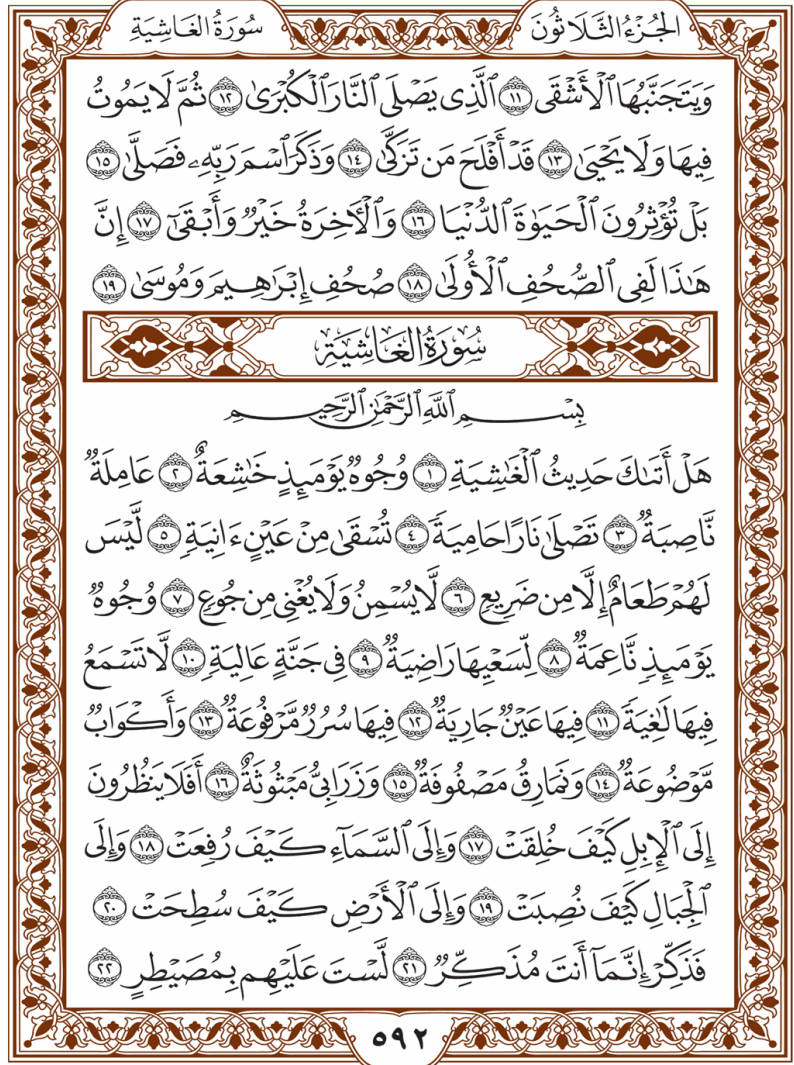 الجُزْءُ الثَّلَاثُونَ
سُورَةُ الغَاشِيَةِ
وَيَتَجَنَّبُهَا ٱلْأَشْقَى ١١ ٱلَّذِى يَصْلَى ٱلنَّارَ ٱلْكُبْرَىٰ ١٢ ثُمَّ لَا يَمُوتُ
فِيهَا وَلَا يَحْيَىٰ ١٣ قَدْ أَفْلَحَ مَن تَزَكَّىٰ ١٤ وَذَكَرَ ٱسْمَ رَبِّهِۦ فَصَلَّىٰ ١٥
بَلْ تُؤْثِرُونَ ٱلْحَيَوٰةَ ٱلدُّنْيَا ١٦ وَٱلْـَٔاخِرَةُ خَيْرٌ وَأَبْقَىٰٓ ١٧ إِنَّ
هَـٰذَا لَفِى ٱلصُّحُفِ ٱلْأُولَىٰ ١٨ صُحُفِ إِبْرَٰهِيمَ وَمُوسَىٰ ١٩
سُورَةُ الغَاشِيَةِ
بِسْمِ ٱللَّهِ ٱلرَّحْمَـٰنِ ٱلرَّحِيمِ
هَلْ أَتَىٰكَ حَدِيثُ ٱلْغَـٰشِيَةِ ١ وُجُوهٌ يَوْمَئِذٍ خَـٰشِعَةٌ ٢ عَامِلَةٌ
نَّاصِبَةٌ ٣ تَصْلَىٰ نَارًا حَامِيَةً ٤ تُسْقَىٰ مِنْ عَيْنٍ ءَانِيَةٍ ٥ لَّيْسَ
لَهُمْ طَعَامٌ إِلَّا مِن ضَرِيعٍ ٦ لَّا يُسْمِنُ وَلَا يُغْنِى مِن جُوعٍ ٧ وُجُوهٌ
يَوْمَئِذٍ نَّاعِمَةٌ ٨ لِّسَعْيِهَا رَاضِيَةٌ ٩ فِى جَنَّةٍ عَالِيَةٍ ١٠ لَّا تَسْمَعُ
فِيهَا لَـٰغِيَةً ١١ فِيهَا عَيْنٌ جَارِيَةٌ ١٢ فِيهَا سُرُرٌ مَّرْفُوعَةٌ ١٣ وَأَكْوَابٌ
مَّوْضُوعَةٌ ١٤ وَنَمَارِقُ مَصْفُوفَةٌ ١٥ وَزَرَابِىُّ مَبْثُوثَةٌ ١٦ أَفَلَا يَنظُرُونَ
إِلَى ٱلْإِبِلِ كَيْفَ خُلِقَتْ ١٧ وَإِلَى ٱلسَّمَآءِ كَيْفَ رُفِعَتْ ١٨ وَإِلَى
ٱلْجِبَالِ كَيْفَ نُصِبَتْ ١٩ وَإِلَى ٱلْأَرْضِ كَيْفَ سُطِحَتْ ٢٠
فَذَكِّرْ إِنَّمَآ أَنتَ مُذَكِّرٌ ٢١ لَّسْتَ عَلَيْهِم بِمُصَيْطِرٍ ٢٢
٥٩٢